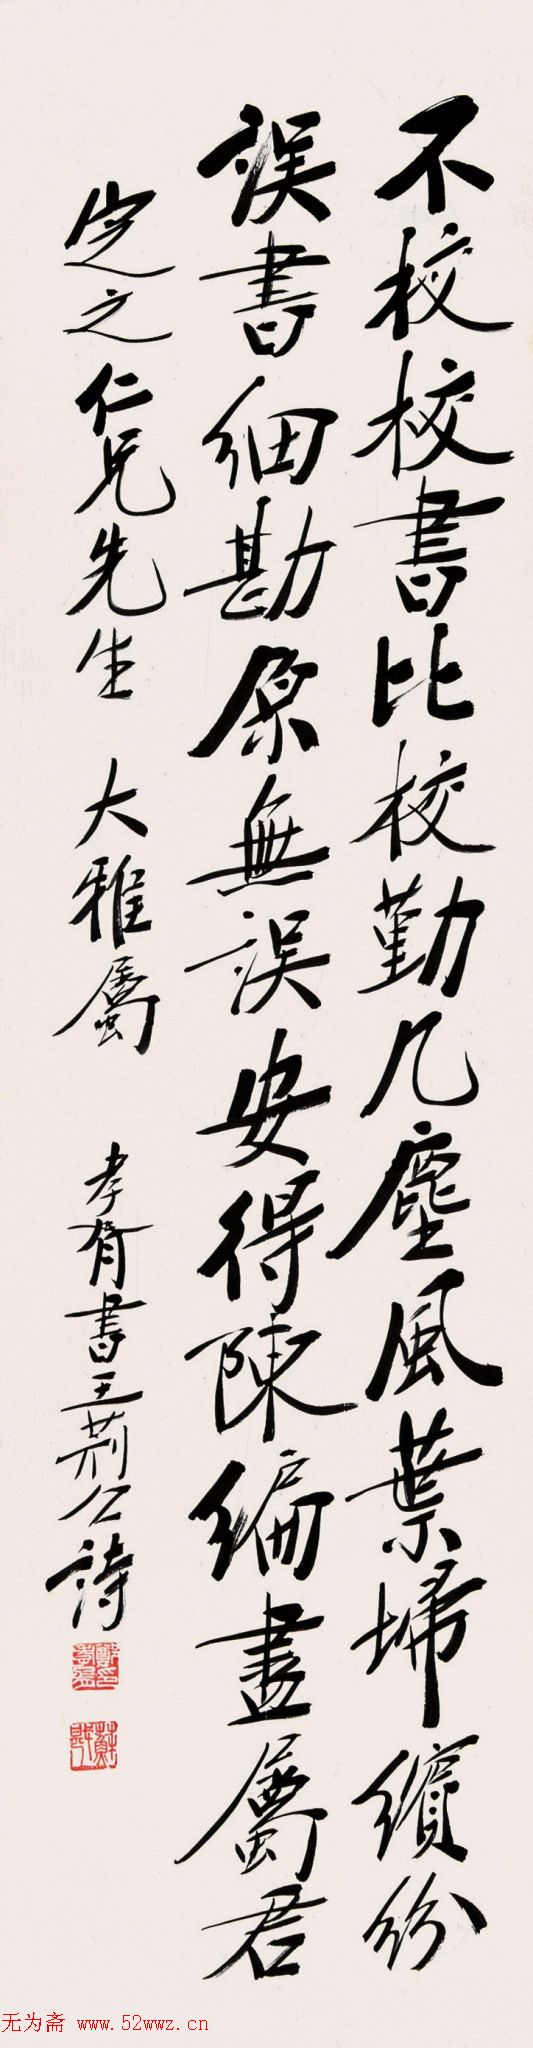 不校校書比校勤几塵風葉埽繽紛
誤書細勘原無誤安得陳編盡屬君
定之仁兄先生 大雅屬 孝胥書王荆公詩
鄭孝胥印
蘇戡
无为斋 www.52wwz.cn